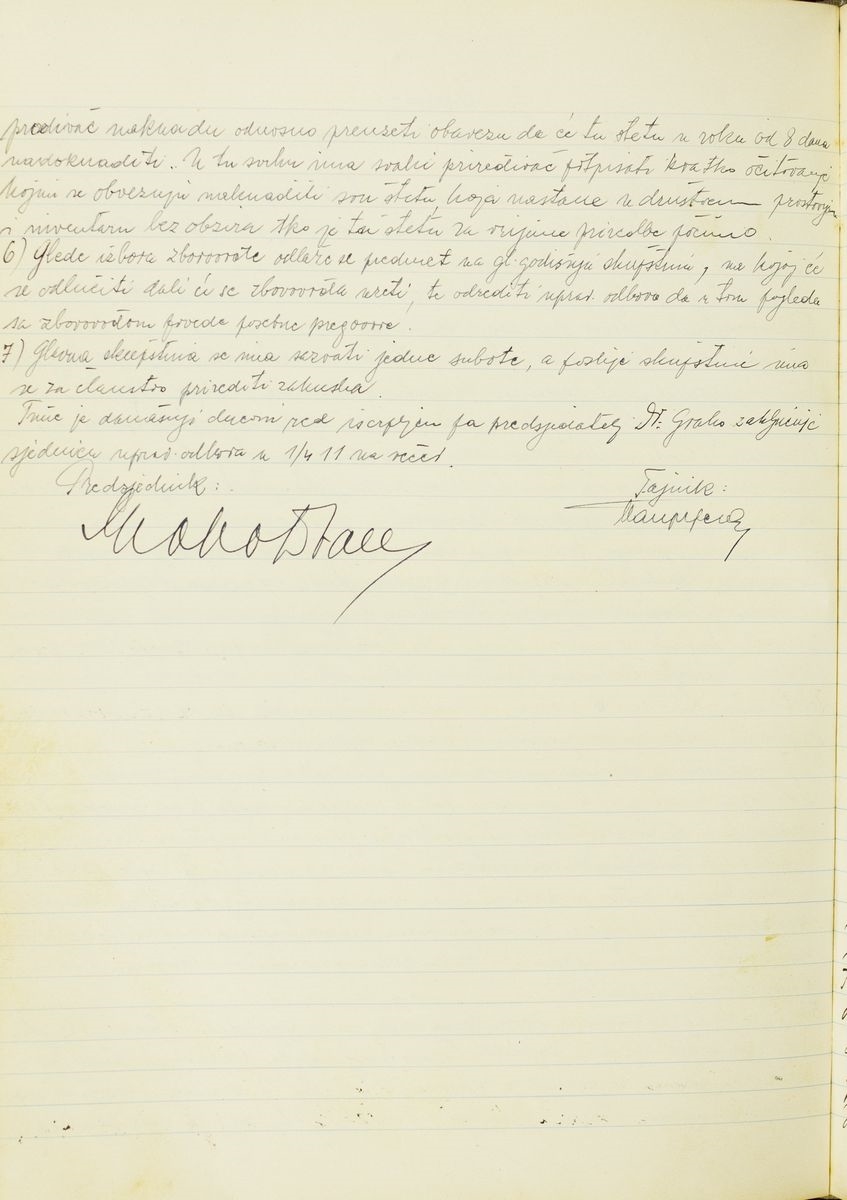 predivač naknadu odnosno preuzeti obavezu da će tu štetu u roku od 8 dana
nadoknaditi. U tu svrhu ima svaki priređivač potpisati kratko očitovanje
kojim se obvezuju naknaditi svu štetu, koja nastane u društvenim prostorijam
i inventaru bez obzira tko je tu štetu za vrijeme priredbe počinio.
6) Glede izbora zborovođe odlaže se predmet na gl. godišnju skupštinu, na kojoj će
se odlučiti dali će se zborovođa uzeti, te odrediti uprav. odboru da u tom pogledu
sa zborovođom provede posebne pregovore.
7) Glavna skupština se ima sazvati jedne subote, a poslije skupštine ima
se za članstvo prirediti zakuska.
Time je današnji dnevni red iscrpljen pa predsjedatelj Dr. Graho zaključuje
sjednicu uprav. odbora u 1/4 11 na večer.
Predsjednik:
Tajnik: